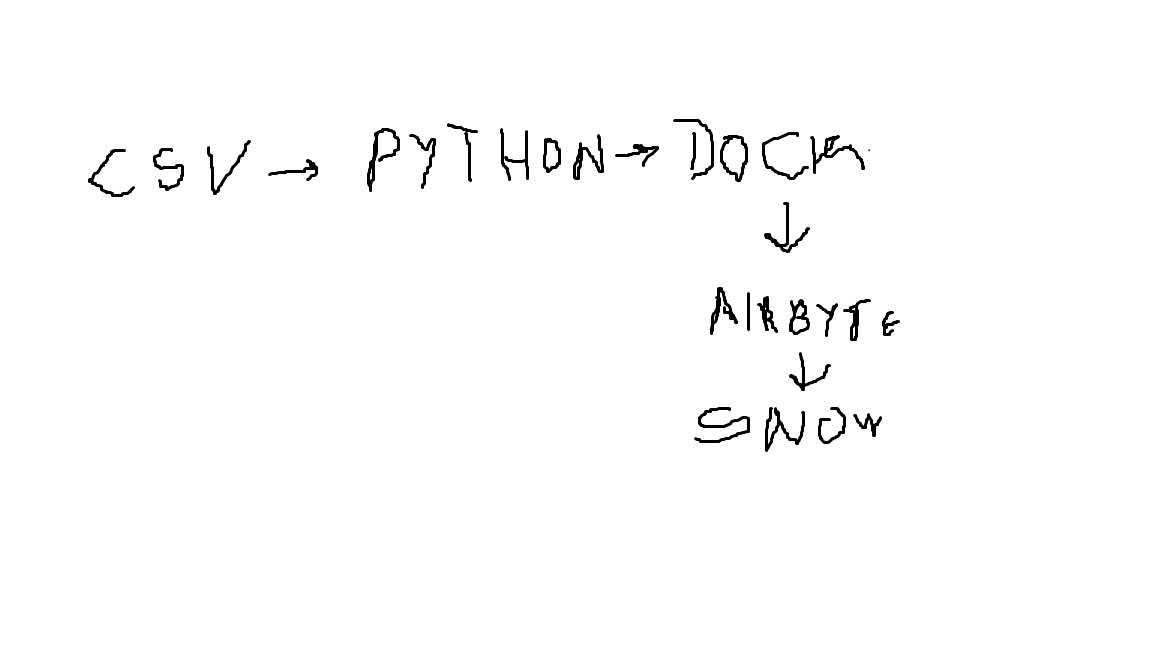 CSV → PYTHON → DOCK
↓
AIRBYTE
↓
SNOW